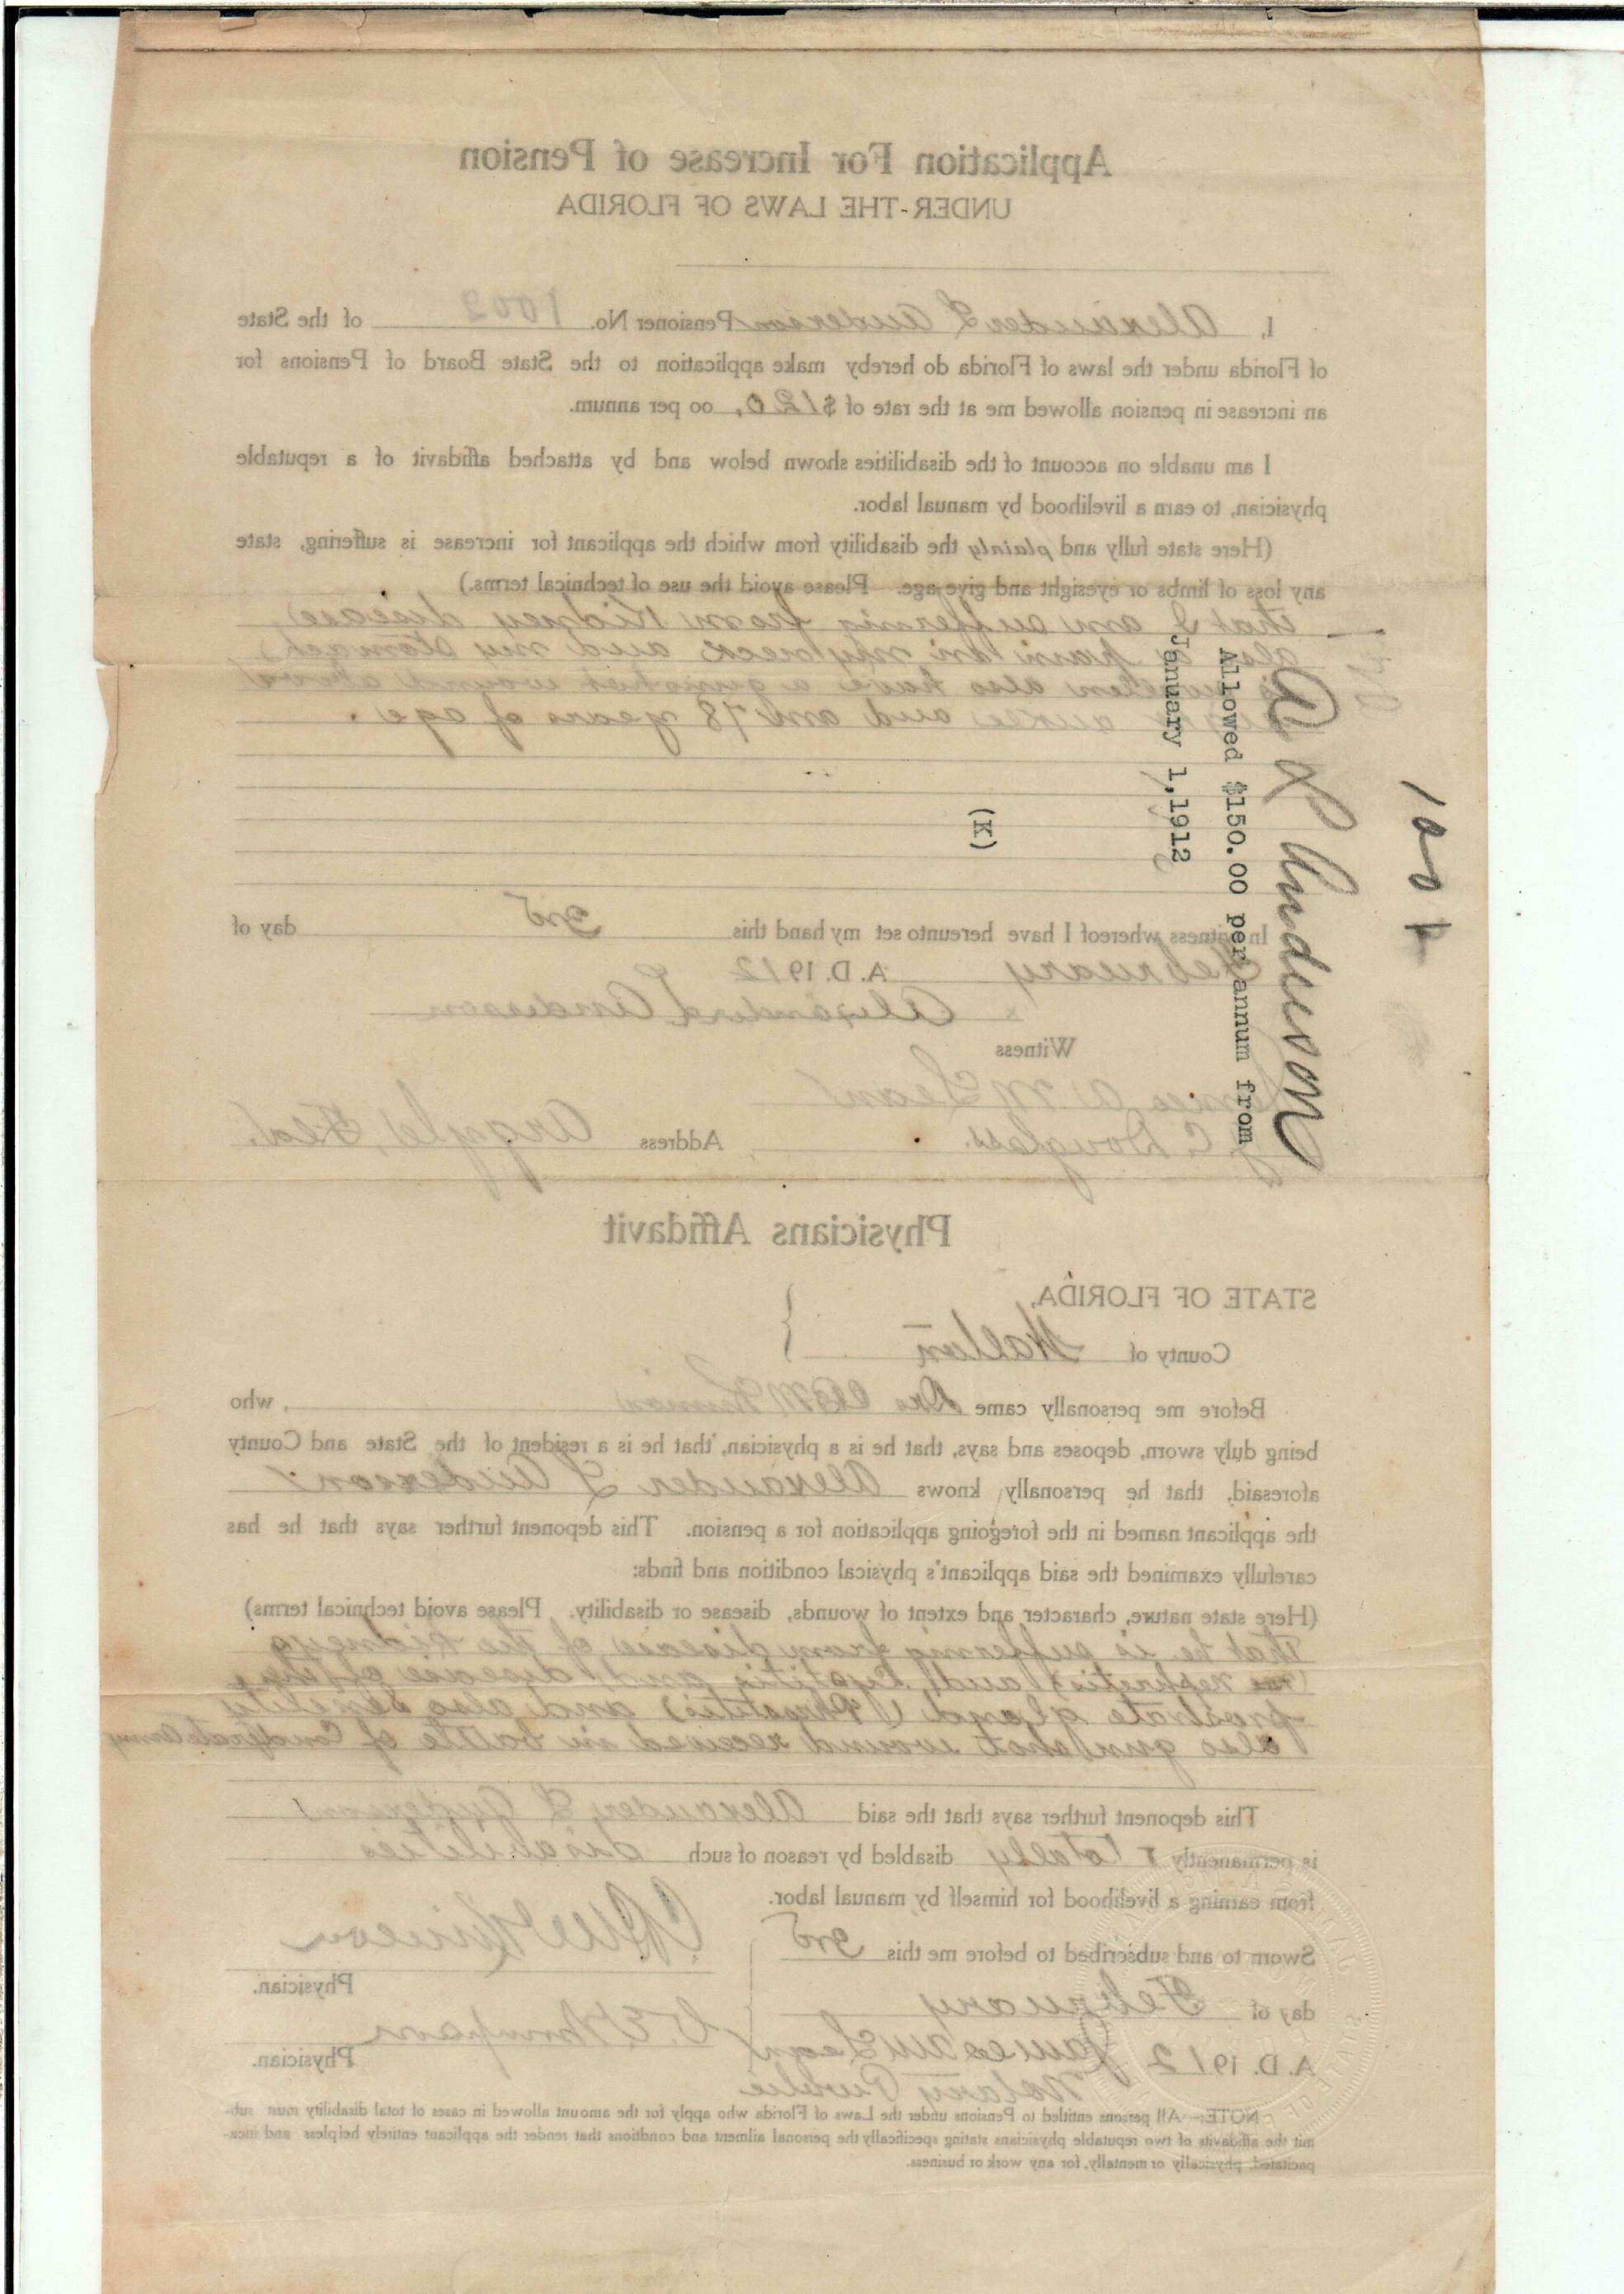 1004
A L Anderson
Allowed $150.00 per annum from
January 1, 1912
(K)
Application For Increase of Pension
UNDER THE LAWS OF FLORIDA
I, Alexander L Anderson Pensioner No. 1002 of the State
of Florida under the laws of Florida do hereby make application to the State Board of Pensions for
an increase in pension allowed me at the rate of $120. oo per annum.
I am unable on account of the disabilities shown below and by attached affidavit of a reputable
physician, to earn a livelihood by manual labor.
(Here state fully and plainly the disability from which the applicant for increase is suffering, state
any loss of limbs or eyesight and give age. Please avoid the use of technical terms.)
that I am suffering from Kidney disease
also a pain in my neck and my stomach
is swollen also have a gunshot wound above
ankle and am 78 years of age.
In witness whereof I have hereunto set my hand this 3rd day of
February A. D. 1912
x Alexander L Anderson
Witness
James A McLean
C Douglass. Address Argyle, Fla.
Physicians Affidavit
STATE OF FLORIDA,
County of Walton }
Before me personally came Dr. C B McKinnon, who
being duly sworn, deposes and says, that he is a physician, that he is a resident of the State and County
aforesaid, that he personally knows Alexander L Anderson
the applicant named in the foregoing application for a pension. This deponent further says that he has
carefully examined the said applicant's physical condition and finds:
(Here state nature, character and extent of wounds, disease or disability. Please avoid technical terms)
that he is suffering from disease of the kidneys
nephritis and Cystitis and disease of the
prostrate gland (Prostitis) and also senility
also gunshot wound received in battle of Confederate Army
This deponent further says that the said Alexander L Anderson
is permanently & totally disabled by reason of such disabilities
from earning a livelihood for himself by manual labor.
Sworn to and subscribed to before me this 3rd
C B McKinnon
Physician.
day of February
Thompson
Physician.
A. D. 1912 James A McLean
Notary Public
NOTE:- All persons entitled to Pensions under the Laws of Florida who apply for the amount allowed in cases of total disability must sub-
mit the affidavits of two reputable physicians stating specifically the personal ailment and conditions that render the applicant entirely helpless and inca-
pacitated, physically or mentally, for any work or business.